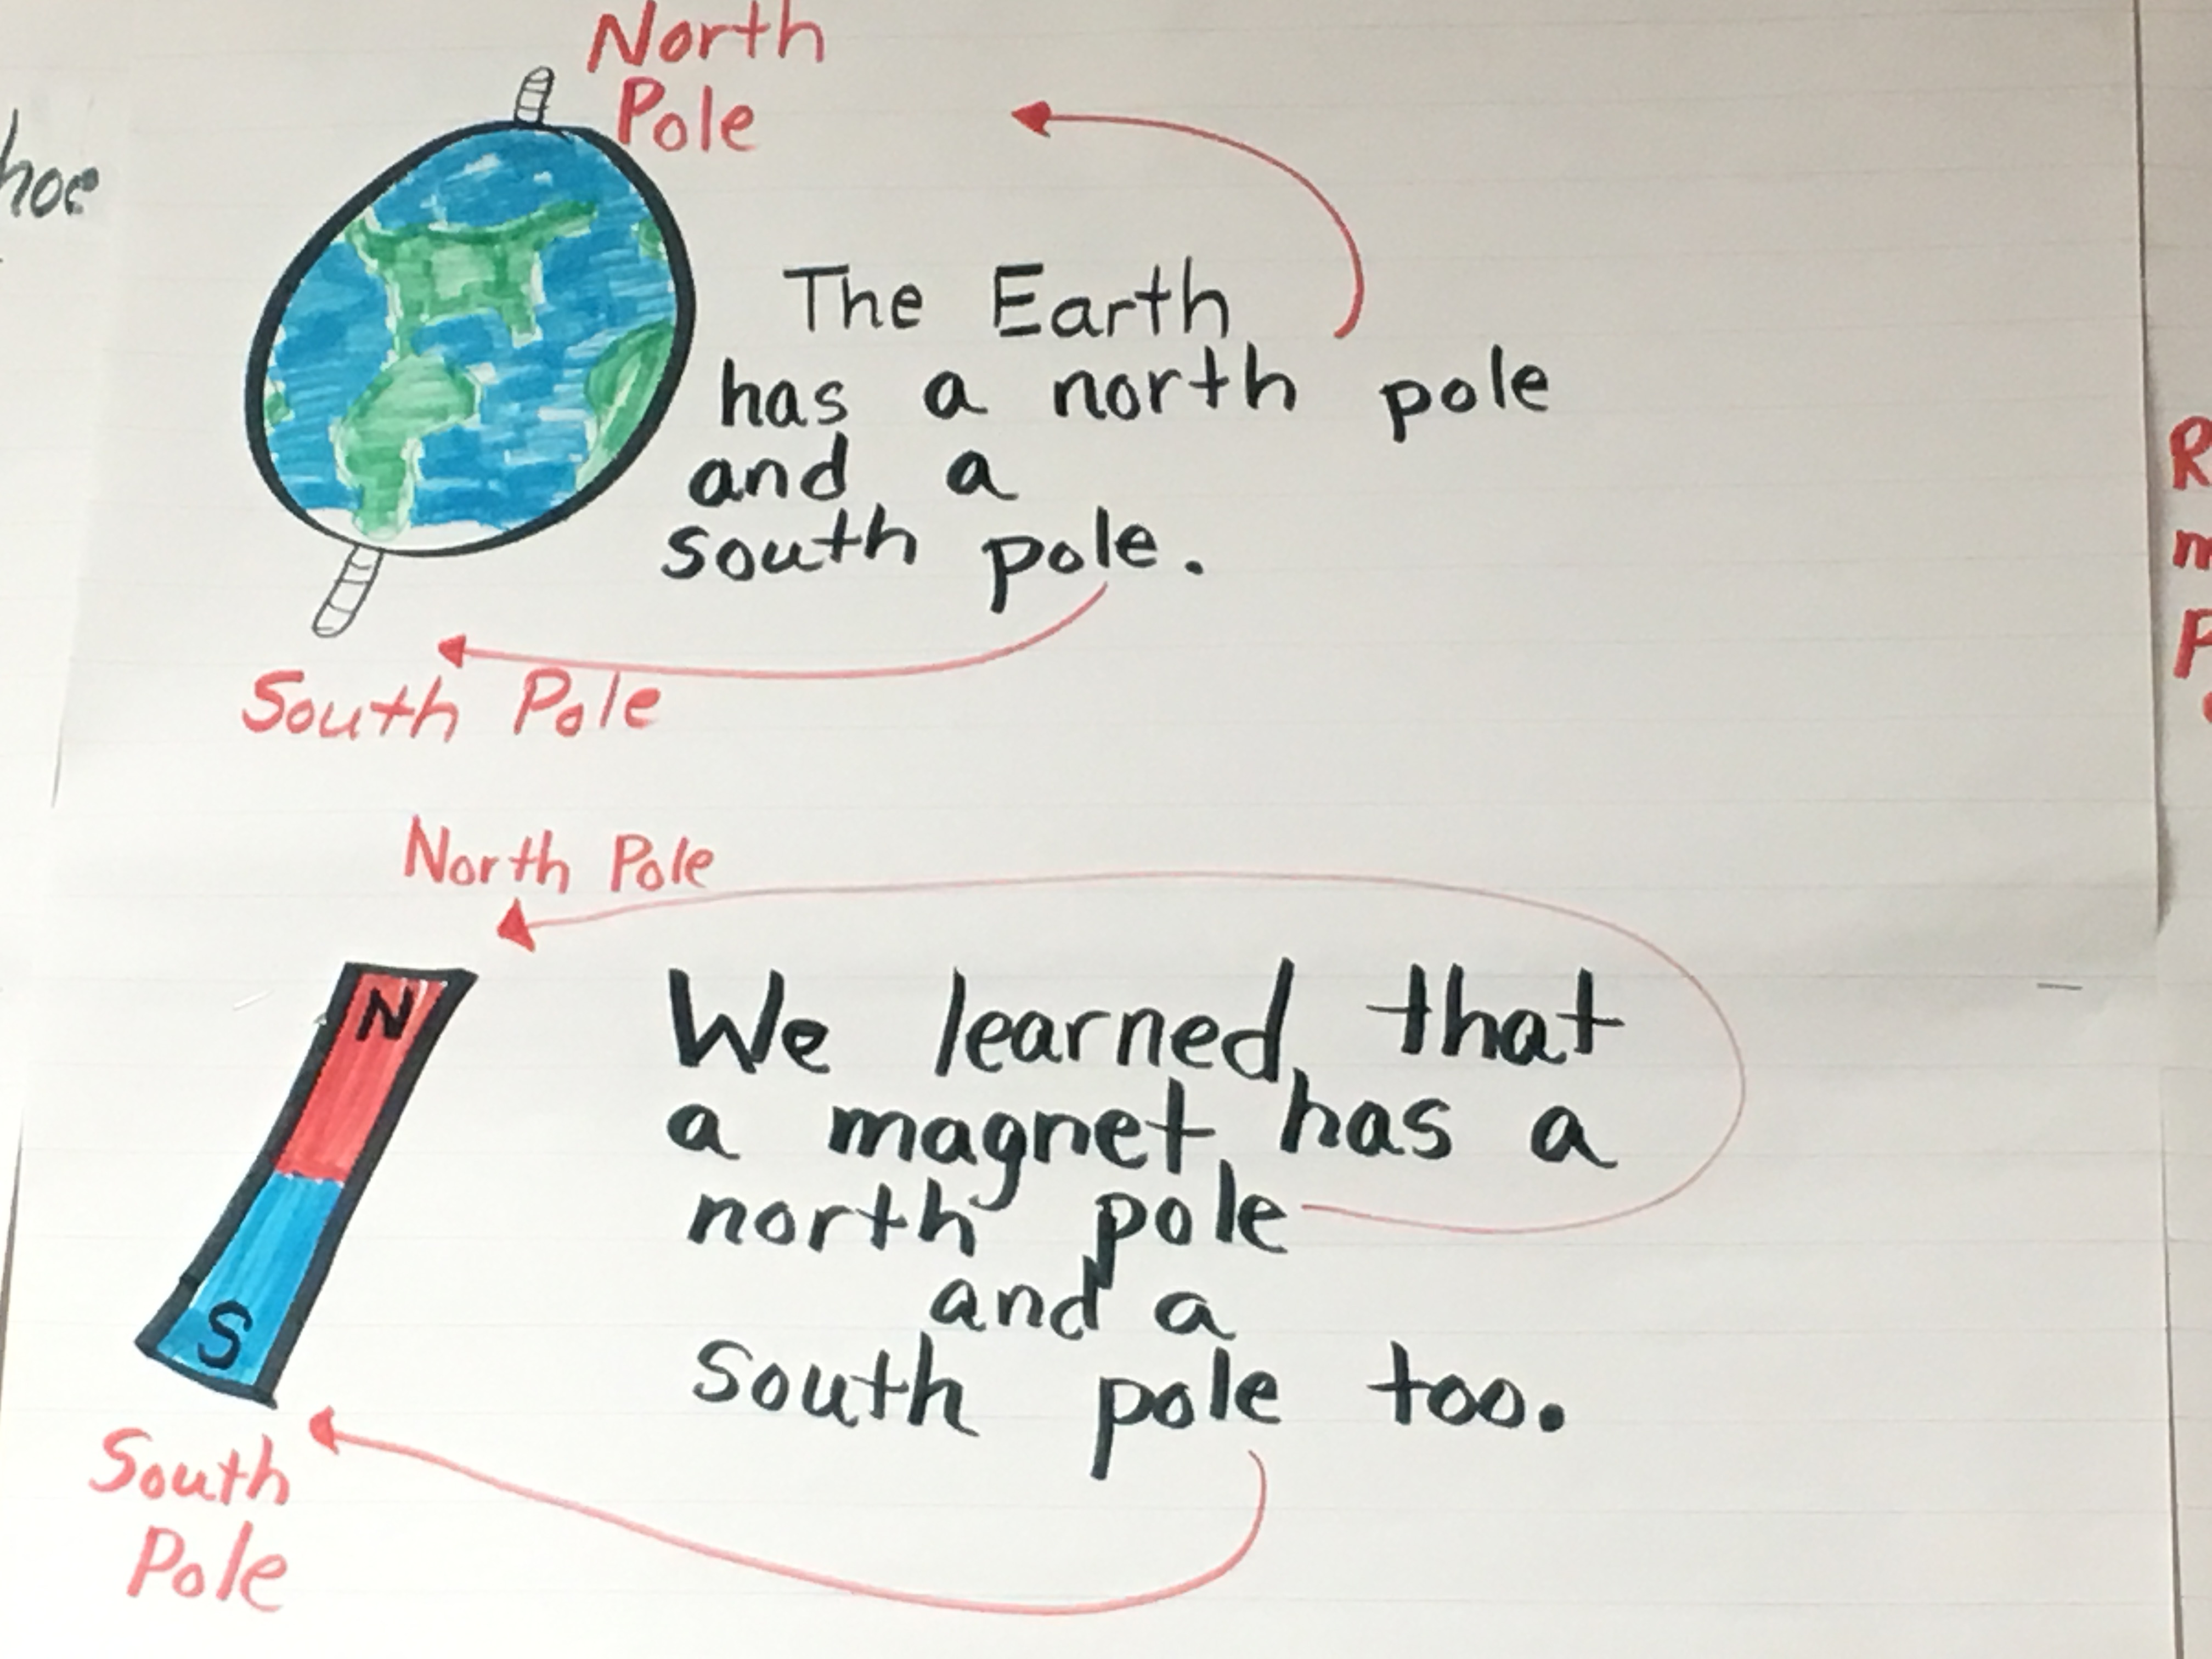 North
Pole
hoe
The Earth
has a north pole
and a
south pole.
South Pole
North Pole
N
We learned that
a magnet has a
north pole
and a
S
south pole too.
South
Pole
R
m
P